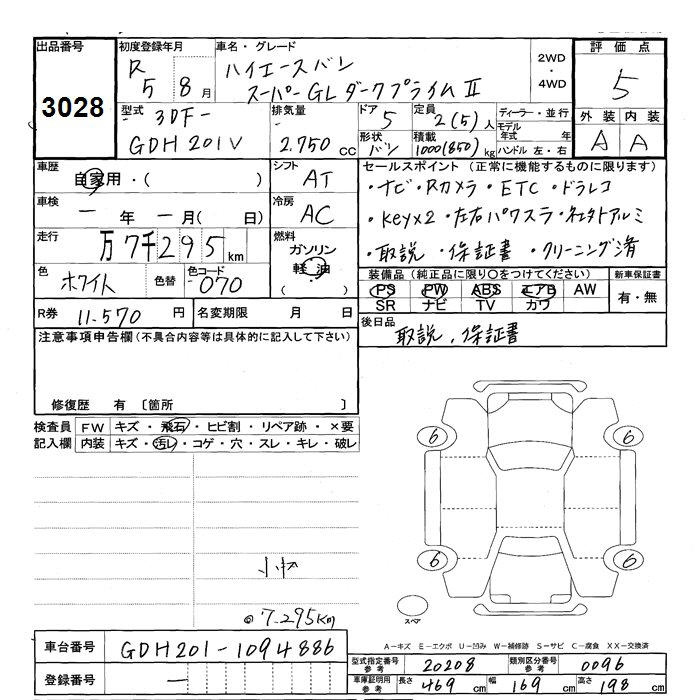 出品番号
3028
初度登録年月
R 5 8月
車名・グレード
ハイエースバン
スーパーGLダークプライムⅡ
2WD
・
4WD
評価点
5
外装 内装
A A
型式
3DF-
GDH201V
排気量
2.750 cc
ドア
5
形状
バン
定員
2(5)人
積載
1000(850)kg
ディーラー・並行
モデル年式 年
ハンドル 左・右
車歴
自家用・( )
シフト
AT
車検
一 年 一 月( 日)
冷房
AC
走行
万7千295km
燃料
ガソリン
軽油
( )
色
ホワイト
色替
色コード
070
セールスポイント(正常に機能するものに限ります)
・ナビ・Rカメラ・ETC・ドラレコ
・Keyx2・左右パワスラ・社外アルミ
・取説・保証書・クリーニング済
装備品(純正品に限り〇をつけてください)
PS PW ABS エアB AW
SR ナビ TV カワ
新車保証書
有・無
R券 11.570円
名変期限 月 日
後日品
取説、保証書
注意事項申告欄(不具合内容等は具体的に記入して下さい)
修復歴 有〔箇所 〕
検査員記入欄
FW キズ・飛石・ヒビ割・リペア跡・×要
内装 キズ・汚レ・コゲ・穴・スレ・キレ・破レ
6 6
6 6
スペア
◎7.295km
車台番号 GDH201-1094886
登録番号 一
A-キズ E-エクボ U-凹み W-補修跡 S-サビ C-腐食 XX-交換済
型式指定番号 参考 20208 類別区分番号 参考 0096
車庫証明用 参考 長さ 469cm 幅 169cm 高さ 198cm